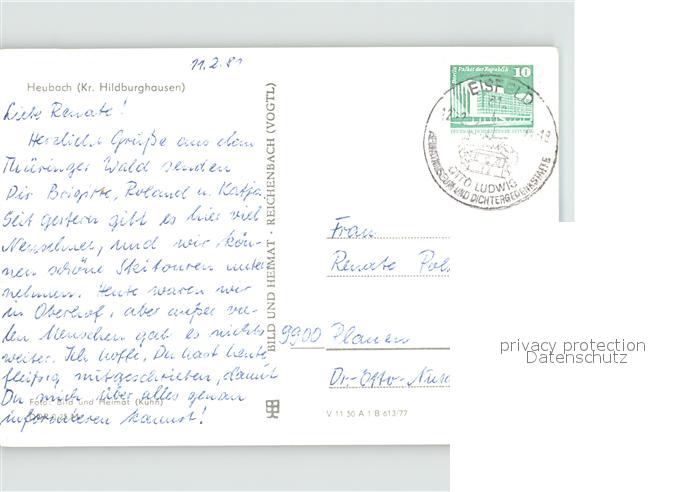 11.2.81
Heubach (Kr. Hildburghausen)
Liebe Renate!
Herzliche Grüße aus dem
Thüringer Wald senden
Dir Brigitte, Roland u. Katja.
Seit gestern gibt es hier viel
Neuschnee, und wir kön-
nen schöne Skitouren unter
nehmen. Heute waren wir
in Oberhof, aber außer vie-
len Menschen gab es nichts
weiter. Ich hoffe, Du hast heute
fleißig mitgeschrieben, damit
Du mich über alles genau
informieren kannst!
Foto: Bild und Heimat (Kühn)
BILD UND HEIMAT · REICHENBACH (VOGTL)
Berlin, Palast der Republik
10
EISFELD
OTTO LUDWIG
HEIMATMUSEUM UND DICHTERGEDENKSTÄTTE
Frau
Renate
9900 Plauen
Dr.-Otto-
V 11 50 A 1 B 613/77
privacy protection
Datenschutz